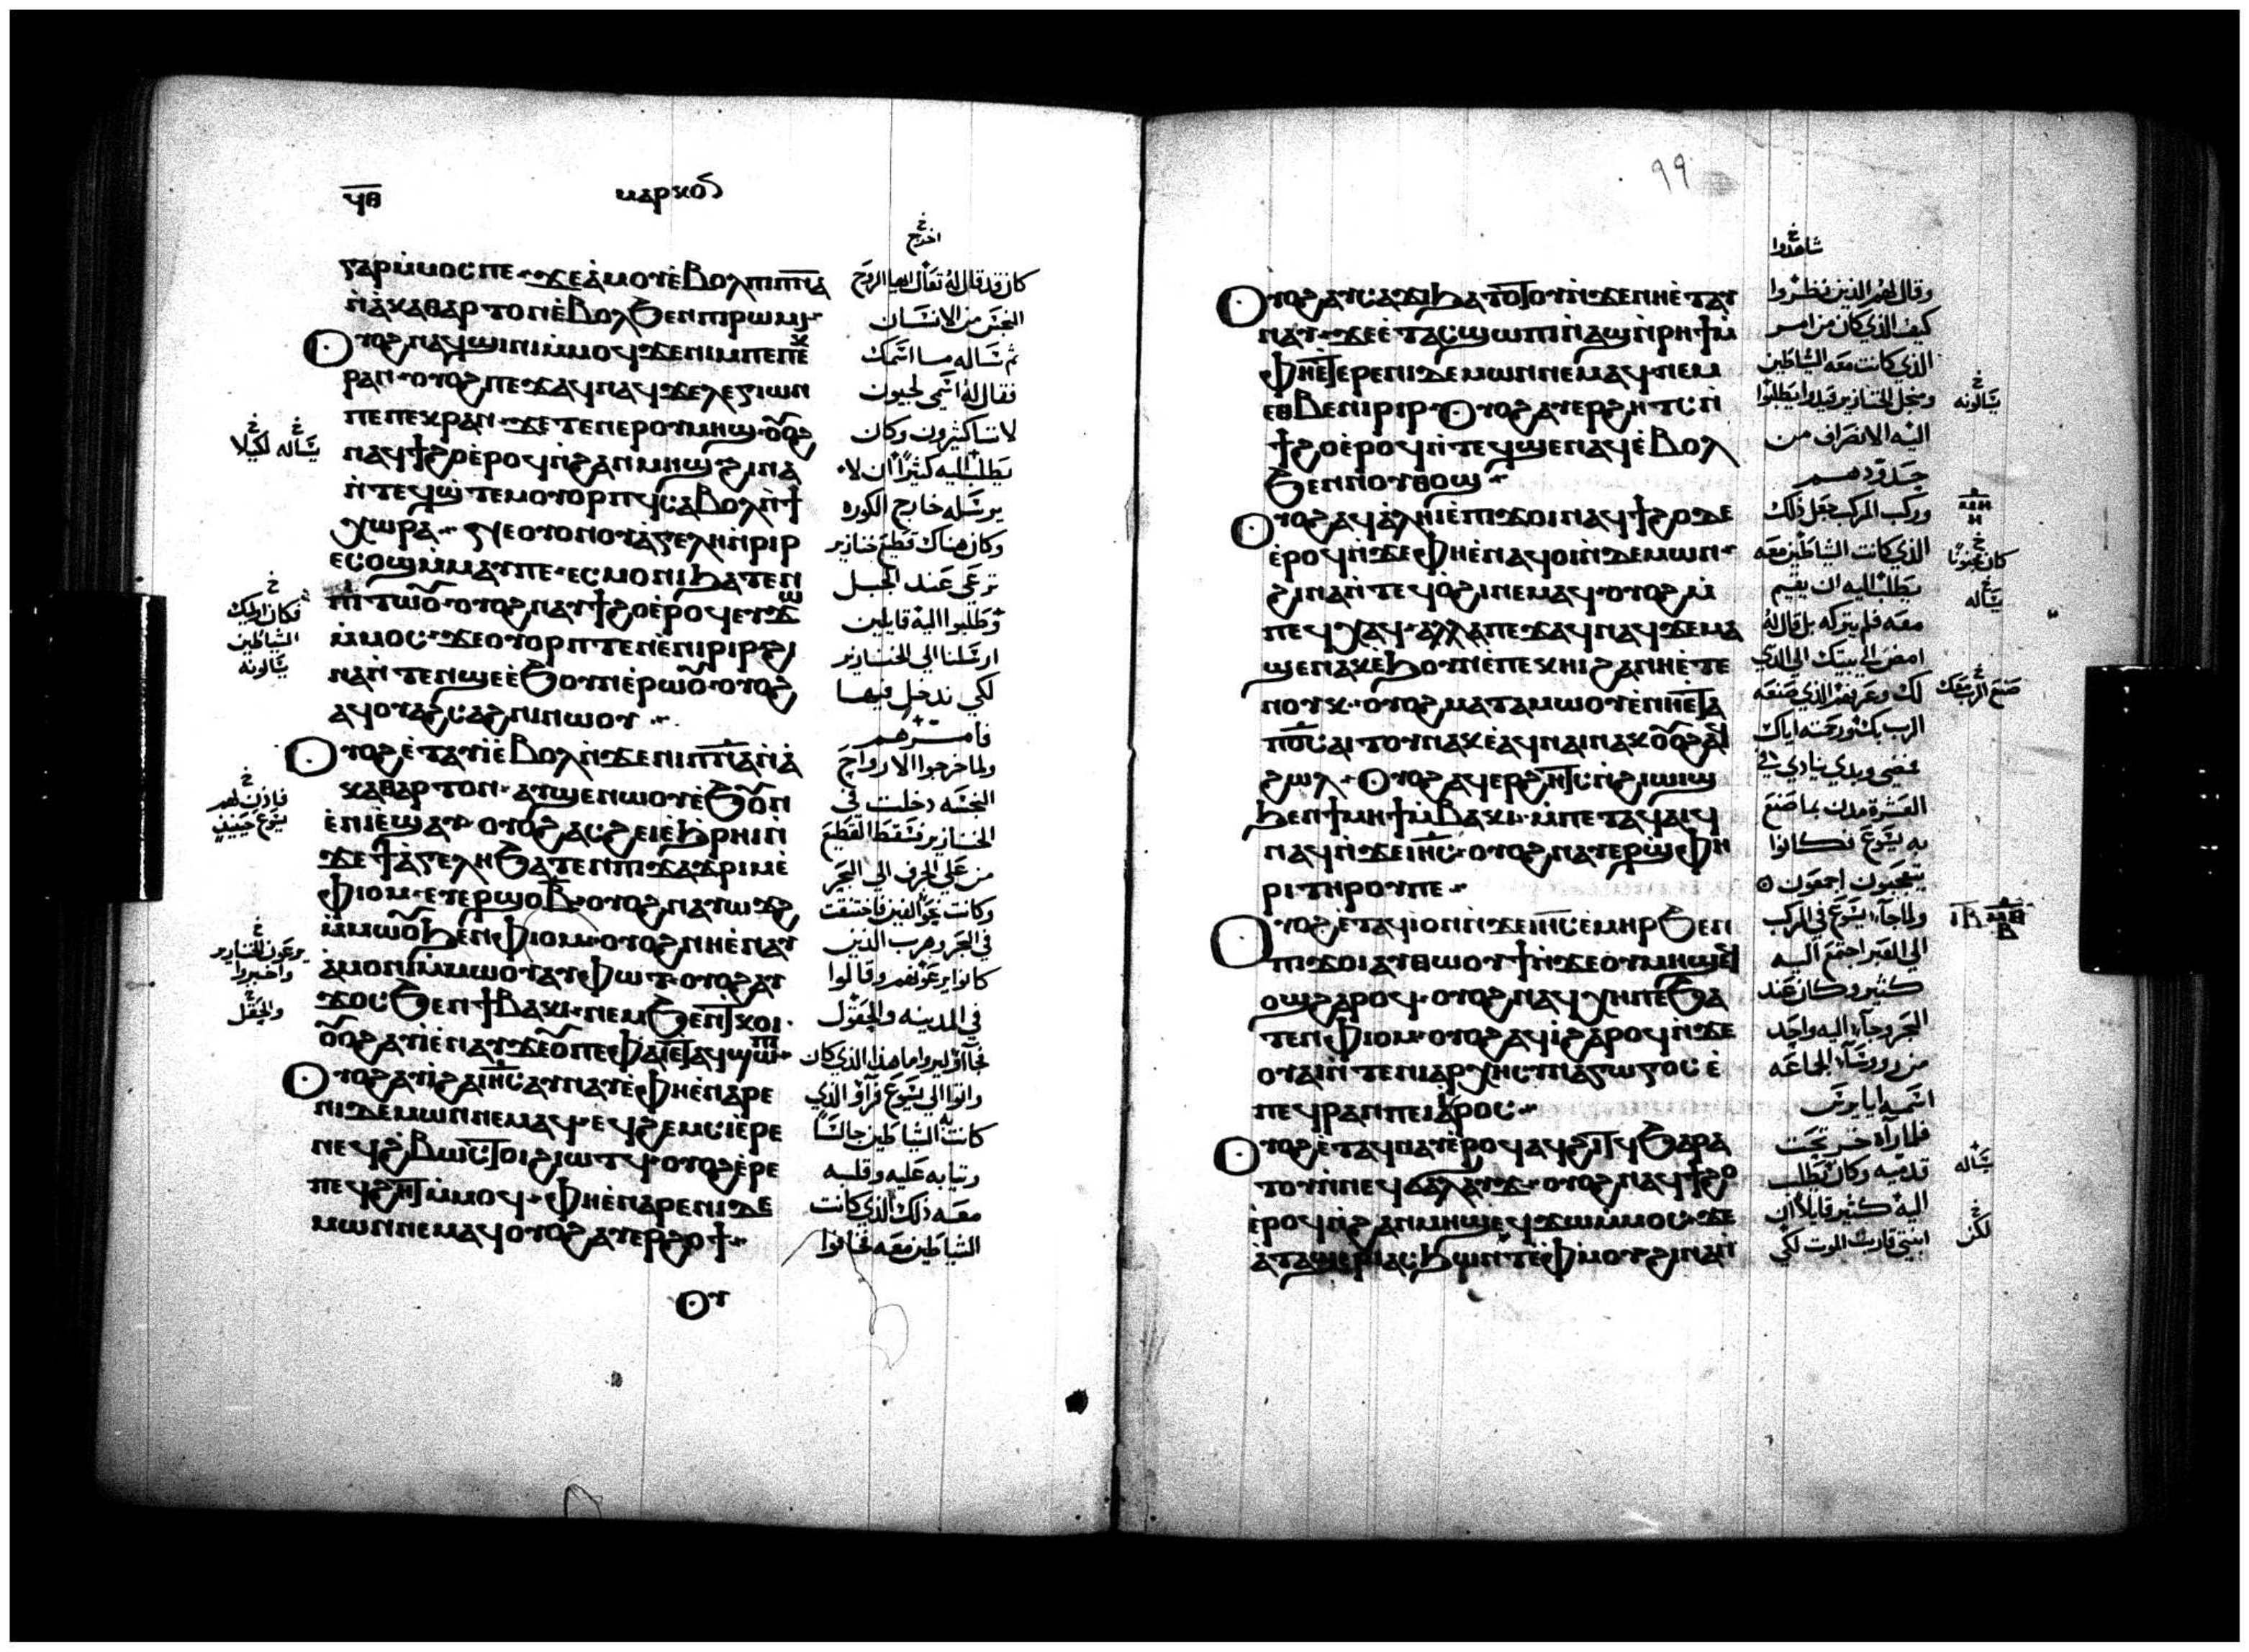 ϥⲑ
ⲙⲁⲣⲕⲟⲥ
اخرج
ⲅⲁⲣⲙ̀ⲙⲟⲥⲡⲉ· ϫⲉⲁ̀ⲙⲟⲩⲉ̀ⲃⲟⲗⲡⲓⲡ̅ⲛ̅ⲁ̅
ⲛ̀ⲁ̀ⲕⲁⲑⲁⲣⲧⲟⲛⲉ̀ⲃⲟⲗϧⲉⲛⲡⲓⲣⲱⲙⲓ·
ⲟⲩⲟϩⲛⲁϥϣⲓⲛⲓⲙ̀ⲙⲟϥϫⲉⲛⲓⲙⲡⲉⲡⲉⲕ
ⲣⲁⲛ· ⲟⲩⲟϩⲡⲉϫⲁϥⲛⲁϥϫⲉⲗⲉⲅⲓⲱⲛ
ⲡⲉⲡⲉⲕⲣⲁⲛ· ϫⲉⲧⲉⲛⲉⲣⲟⲩⲙⲏϣ· ⲟⲩⲟϩ
ⲛⲁϥϯϩⲟⲉ̀ⲣⲟϥⲛ̀ϩⲁⲛⲙⲏϣϩⲓⲛⲁ
ⲛ̀ⲧⲉϥϣ̀ⲧⲉⲙⲟⲩⲟⲣⲡϥⲥⲁⲃⲟⲗⲛ̀ϯ
ⲭⲱⲣⲁ· ⲛⲉⲟⲩⲟⲛⲟⲩⲁ̀ⲅⲉⲗⲏⲛ̀ⲣⲓⲣ
ⲉⲥⲟϣⲙ̀ⲙⲁⲩⲡⲉ· ⲉⲥⲙⲟⲛⲓϧⲁⲧⲉⲛ
ⲡⲓⲧⲱⲟⲩ· ⲟⲩⲟϩⲛⲁⲩϯϩⲟⲉ̀ⲣⲟϥⲉⲩϫⲱ
ⲙ̀ⲙⲟⲥ· ϫⲉⲟⲩⲟⲣⲡⲧⲉⲛⲉ̀ⲛⲓⲣⲓⲣϩⲓ
ⲛⲁⲛ̀ⲧⲉⲛϣⲉⲉ̀ϧⲟⲩⲛⲉ̀ⲣⲱⲟⲩ· ⲟⲩⲟϩ
ⲁϥⲟⲩⲁϩⲥⲁϩⲛⲓⲛⲱⲟⲩ·
ⲟⲩⲟϩⲉ̀ⲧⲁⲩⲓ̀ⲉ̀ⲃⲟⲗⲛ̀ϫⲉⲛⲓⲡ̅ⲛ̅ⲁ̅ⲛ̀ⲁ̀
ⲕⲁⲑⲁⲣⲧⲟⲛ· ⲁⲩϣⲉⲛⲱⲟⲩⲉ̀ϧⲟⲩⲛ
ⲉ̀ⲛⲓⲉ̀ϣⲁⲩ· ⲟⲩⲟϩⲁⲥϩⲉⲓⲉ̀ϧⲣⲏⲓⲛ̀
ϫⲉϯⲁ̀ⲅⲉⲗⲏϧⲁⲧⲉⲛⲡⲓϫⲁϫⲣⲓⲙⲉ̀
ⲫⲓⲟⲙ· ⲉⲩⲉⲣϣⲟⲃ̅· ⲟⲩⲟϩⲛⲁⲩⲱϫϩ
ⲙ̀ⲙⲱⲟⲩϧⲉⲛⲫⲓⲟⲙ· ⲟⲩⲟϩⲛⲏⲉ̀ⲛⲁⲩ
ⲁ̀ⲙⲟⲛⲓⲙ̀ⲙⲱⲟⲩⲁⲩⲫⲱⲧ· ⲟⲩⲟϩⲁⲩ
ϫⲟⲥϧⲉⲛϯⲃⲁⲕⲓ· ⲛⲉⲙϧⲉⲛⲓⲕⲟⲓ·
ⲟⲩⲟϩⲁⲩⲓ̀ⲉ̀ⲛⲁⲩϫⲉⲟⲩⲡⲉⲫⲁⲓⲉⲧⲁϥϣⲱⲡⲓ·
ⲟⲩⲟϩⲁⲩⲓ̀ϩⲁⲓ̅ⲏ̅ⲥ̅ⲁⲩⲛⲁⲩⲉ̀ⲫⲏⲉ̀ⲛⲁⲣⲉ
ⲛⲓⲇⲉⲙⲱⲛⲛⲉⲙⲁϥ· ⲉϥϩⲉⲙⲥⲓⲉ̀ⲣⲉ
ⲛⲉϥϩⲃⲱⲥⲧⲟⲓϩⲓⲱⲧϥ· ⲟⲩⲟϩⲉ̀ⲣⲉ
ⲡⲉϥϩⲏⲧⲙ̀ⲙⲟϥ· ⲫⲏⲉ̀ⲛⲁⲣⲉⲛⲓⲇⲉ
ⲙⲱⲛⲛⲉⲙⲁϥⲟⲩⲟϩⲁⲩⲉⲣϩⲟϯ·
ⲟⲩ
كان قد قال له تعال ايها الروح
النجس من الانسان
ثم ساله ما اسمك
فقال له اسمي لجيون
لاننا كثيرون وكان
يطلب اليه كثيرا ان لا
يرسله خارج الكوره
وكان هناك قطيع خنازير
ترعى عند الجبل
وطلبوا اليه قايلين
ارسلنا الي الخنازير
لكي ندخل فيها
فامرهم
ولما خرجوا الارواح
النجسه دخلت في
الخنازير فسقط القطيع
من على الجرف الي البحر
وكانت نحو الفين فاختنقت
في البحر وهرب الذين
كانوا يرعونهم وقالوا
في المدينه والحقول
فجاؤا ليروا ما هذا الذي كان
واتوا الي يسوع فراوا الذي
كانت الشياطين جالسا
وثيابه عليه وقلبه
معه ذلك الذي كانت
الشياطين معه فخافوا
يساله لكيلا
فكان اوليك
الشياطين
يسالونه
فاذن لهم
يسوع حينيذ
يرعون الخنازير
واخبروا
والحقل
٩٩
شاهدوا
ⲟⲩⲟϩⲁⲩⲥⲁϫⲓϧⲁⲧⲟⲧⲟⲩⲛ̀ϫⲉⲛⲏⲉ̀ⲧⲁⲩ
ⲛⲁⲩ· ϫⲉⲉ̀ⲧⲁⲥϣⲱⲡⲓⲛ̀ⲁϣⲛ̀ⲣⲏϯⲙ̀
ⲫⲏⲉⲧⲉⲣⲉⲛⲓⲇⲉⲙⲱⲛⲛⲉⲙⲁϥ· ⲛⲉⲙ
ⲉⲑⲃⲉⲛⲓⲣⲓⲣ· ⲟⲩⲟϩⲁⲩⲉⲣϩⲏⲧⲥⲛ̀
ϯϩⲟⲉ̀ⲣⲟϥⲛ̀ⲧⲉϥϣⲉⲛⲁϥⲉ̀ⲃⲟⲗ
ϧⲉⲛⲛⲟⲩⲑⲟϣ·
ⲟⲩⲟϩⲁϥⲁ̀ⲗⲏⲓⲉ̀ⲡⲓϫⲟⲓⲛⲁϥϯϩⲟⲇⲉ
ⲉ̀ⲣⲟϥⲛ̀ϫⲉⲫⲏⲉ̀ⲛⲁϥⲟⲓⲛ̀ⲇⲉⲙⲱⲛ·
ϩⲓⲛⲁⲛ̀ⲧⲉϥⲟ̀ϩⲓⲛⲉⲙⲁϥ· ⲟⲩⲟϩⲙ̀
ⲡⲉϥⲭⲁϥ· ⲁⲗⲗⲁⲡⲉϫⲁϥⲛⲁϥϫⲉⲙⲁ
ϣⲉⲛⲁⲕⲉ̀ϧⲟⲩⲛⲉ̀ⲡⲉⲕⲏⲓϩⲁⲛⲏⲉ̀ⲧⲉ
ⲛⲟⲩⲕ· ⲟⲩⲟϩⲙⲁⲧⲁⲙⲱⲟⲩⲉ̀ⲛⲏⲉⲧⲁ
ⲡ̅ⲟ̅ⲥ̅ⲁⲓⲧⲟⲩⲛⲁⲕⲉ̀ⲁϥⲛⲁⲓⲛⲁⲕⲟⲩⲟϩⲁϥ
ϩⲱⲗ· ⲟⲩⲟϩⲁϥⲉⲣϩⲏⲧⲥⲛ̀ϩⲓⲱⲓϣ
ϧⲉⲛϯⲙⲏϯⲙ̀ⲃⲁⲕⲓ· ⲙ̀ⲡⲉⲧⲁϥⲁⲓϥ
ⲛⲁϥⲛ̀ϫⲉⲓ̅ⲏ̅ⲥ̅· ⲟⲩⲟϩⲛⲁⲩⲉⲣϣⲫⲏ
ⲣⲓⲧⲏⲣⲟⲩⲡⲉ·
ⲟⲩⲟϩⲉ̀ⲧⲁϥⲓ̀ⲟⲛⲛ̀ϫⲉⲓ̅ⲏ̅ⲥ̅ⲉ̀ⲙⲏⲣϧⲉⲛ
ⲡⲓϫⲟⲓⲁⲩⲑⲱⲟⲩϯⲛ̀ϫⲉⲟⲩⲙⲏϣⲉϥ
ⲟϣϩⲁⲣⲟϥ· ⲟⲩⲟϩⲛⲁϥⲭⲏⲡⲉϧⲁ
ⲧⲉⲛⲫⲓⲟⲙ· ⲟⲩⲟϩⲁϥⲓ̀ϩⲁⲣⲟϥⲛ̀ϫⲉ
ⲟⲩⲁⲓⲛ̀ⲧⲉⲛⲓⲁⲣⲭⲏⲥⲩⲛⲁⲅⲱⲅⲟⲥⲉ̀
ⲡⲉϥⲣⲁⲛⲡⲉⲓⲁⲓⲣⲟⲥ·
ⲟⲩⲟϩⲉ̀ⲧⲁϥⲛⲁⲩⲉ̀ⲣⲟϥⲁϥϩⲓⲧϥϧⲁⲣⲁ
ⲧⲟⲩⲛ̀ⲛⲉϥϭⲁⲗⲁⲩϫ· ⲟⲩⲟϩⲛⲁϥϯϩⲟ
ⲉ̀ⲣⲟϥⲛ̀ϩⲁⲛⲙⲏϣⲉϥϫⲱⲙ̀ⲙⲟⲥ· ϫⲉ
ⲁ̀ⲧⲁϣⲉⲣⲓⲁⲥϧⲱⲛⲧⲉ̀ⲫ̀ⲙⲟⲩϩⲓⲛⲁⲛ̀
وقال لهم الذين نظروا
كيف الذي كان من امر
الذي كانت معه الشياطين
ومن اجل الخنازير فبدوا يطلبوا
اليه الانصراف من
حدودهم
وركب المركب فجعل ذلك
الذي كانت الشياطين معه
يطلب اليه ان يقيم
معه فلم يتركه بل قال له
امض الي بيتك الي الذي
لك وعرفهم الذي صنعه
الرب بك ورحمته اياك
فمضى وبدي ينادي في
العشرة مدن بما صنع
به يسوع فكانوا
يتعجبون اجمعون
ولما جاء يسوع في المركب
الي العبر اجتمع اليه
كثير وكان عند
البحر وجاء اليه واحد
من روساء الجماعه
اسمه ايايرس
فلما رآه خر تحت
قدميه وكان يطلب
اليه كثير قايلا ان
ابنتي قاربت الموت لكي
يسالونه
ⲙⲏ
ⲏ
كان مجنونا
يساله
صنع الرب معك
ⲓⲃ ⲙⲑ
ⲃ
يساله
لكن